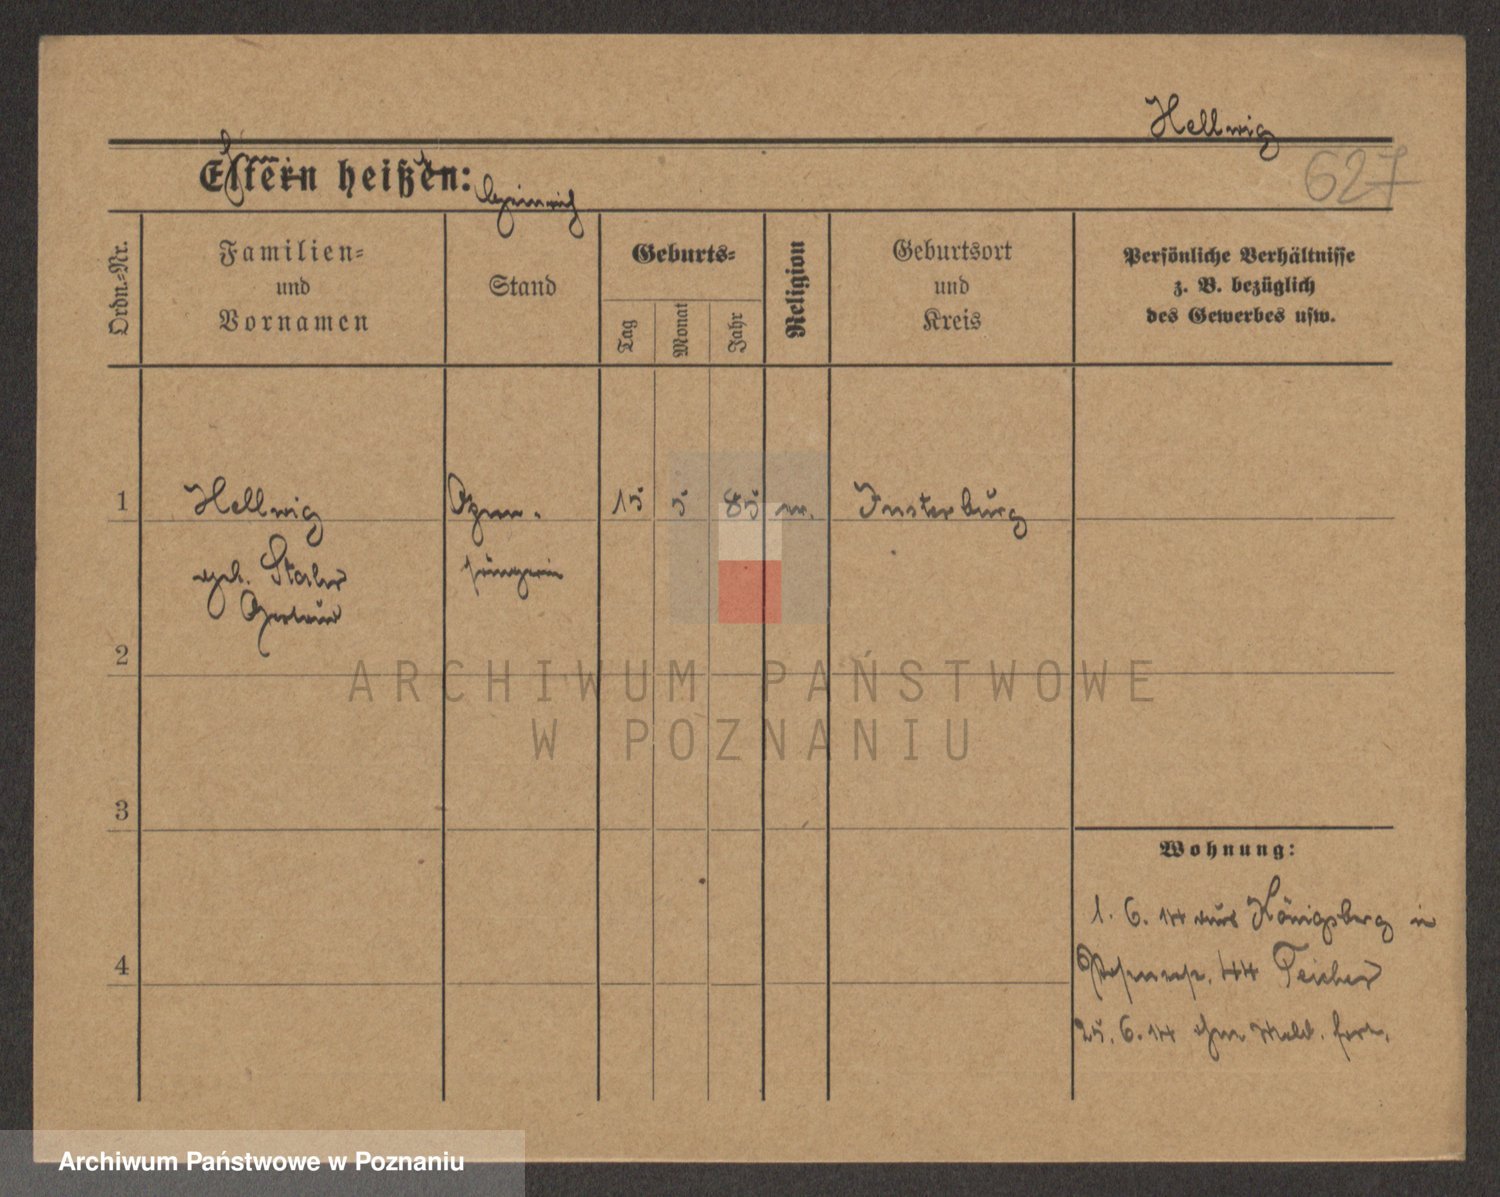 Hellwig
627
Eltern heißen:
Heinrich
Ordn.-Nr.
Familien-
und
Vornamen
Stand
Geburts-
Tag
Monat
Jahr
Religion
Geburtsort
und
Kreis
Persönliche Verhältnisse
z. B. bezüglich
des Gewerbes usw.
1
Hellwig
15
5
85
Insterburg
geb.
sängerin
Gertrud
2
ARCHIWUM PAŃSTWOWE
W POZNANIU
3
Wohnung:
1. 6. 14 aus Königsberg in
4
44 Teicher
25. 6. 14 ohne Meld. fort.
Archiwum Państwowe w Poznaniu